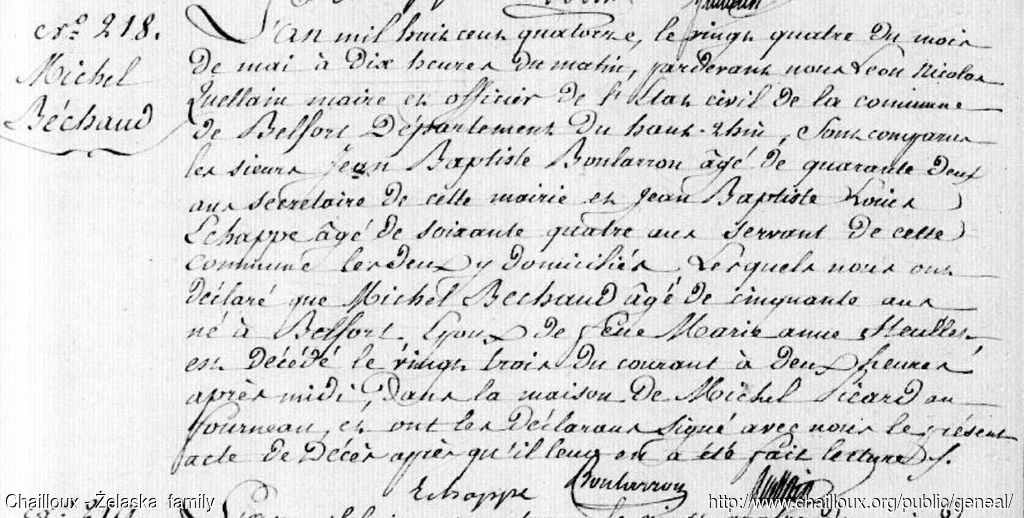 N.º 218.
Michel
Béchaud
L'an mil huit cent quatorze, le vingt quatre du mois
de mai à dix heures du matin, pardevant nous Léon Nicolas
Quellain maire et officier de l'Etat civil de la commune
de Belfort Département du haut-rhin, sont comparus
les sieurs Jean Baptiste Boularron âgé de quarante deux
ans secretaire de cette mairie et Jean Baptiste Louis
Echappe âgé de soixante quatre ans servant de cette
commune les deux y domiciliés. Lesquels nous ont
déclaré que Michel Bechaud âgé de cinquante ans
né à Belfort. Epoux de feue Marie anne
est décédé le vingt trois du courant à deux heures
après midi, dans la maison de Michel Picard au
fourneau, et ont les déclarans signé avec nous le présent
acte de Décès après qu'il leur en a été fait lecture
Echappe Boularron
Chailloux - Żelaska family
http://www.chailloux.org/public/geneal/